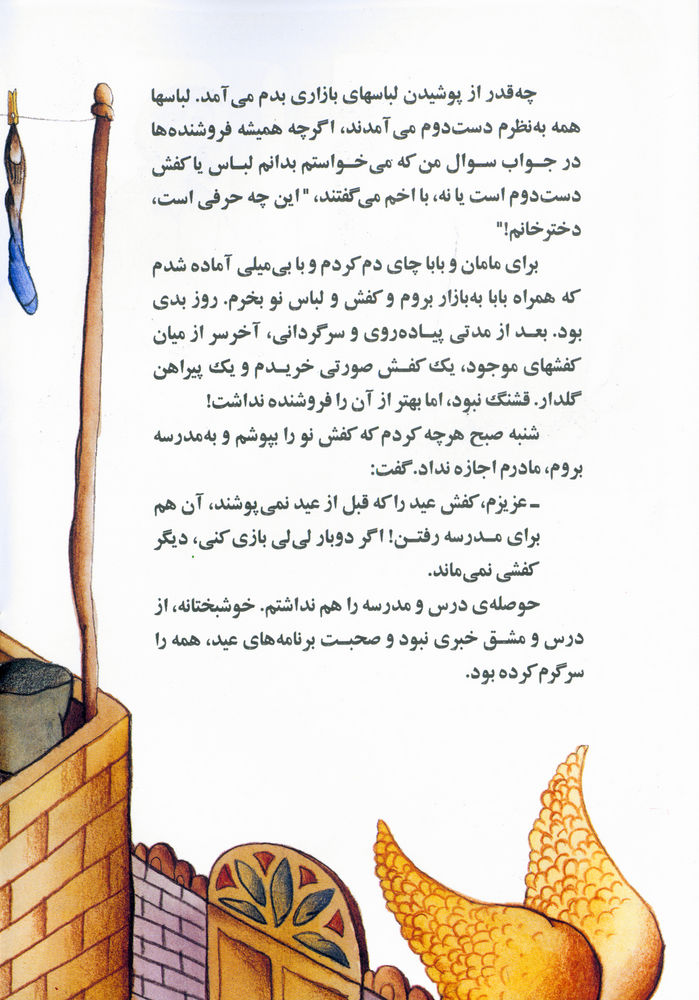 چه‌قدر از پوشیدن لباسهای بازاری بدم می‌آمد. لباسها
همه به‌نظرم دست‌دوم می‌آمدند، اگرچه همیشه فروشنده‌ها
در جواب سوال من که می‌خواستم بدانم لباس یا کفش
دست‌دوم است یا نه، با اخم می‌گفتند، "این چه حرفی است،
دخترخانم!"
برای مامان و بابا چای دم کردم و با بی‌میلی آماده شدم
که همراه بابا به‌بازار بروم و کفش و لباس نو بخرم. روز بدی
بود. بعد از مدتی پیاده‌روی و سرگردانی، آخرسر از میان
کفشهای موجود، یک کفش صورتی خریدم و یک پیراهن
گلدار. قشنگ نبود، اما بهتر از آن را فروشنده نداشت!
شنبه صبح هرچه کردم که کفش نو را بپوشم و به‌مدرسه
بروم، مادرم اجازه نداد. گفت:
ـ عزیزم، کفش عید را که قبل از عید نمی‌پوشند، آن هم
برای مدرسه رفتن! اگر دوبار لی‌لی بازی کنی، دیگر
کفشی نمی‌ماند.
حوصله‌ی درس و مدرسه را هم نداشتم. خوشبختانه، از
درس و مشق خبری نبود و صحبت برنامه‌های عید، همه را
سرگرم کرده بود.